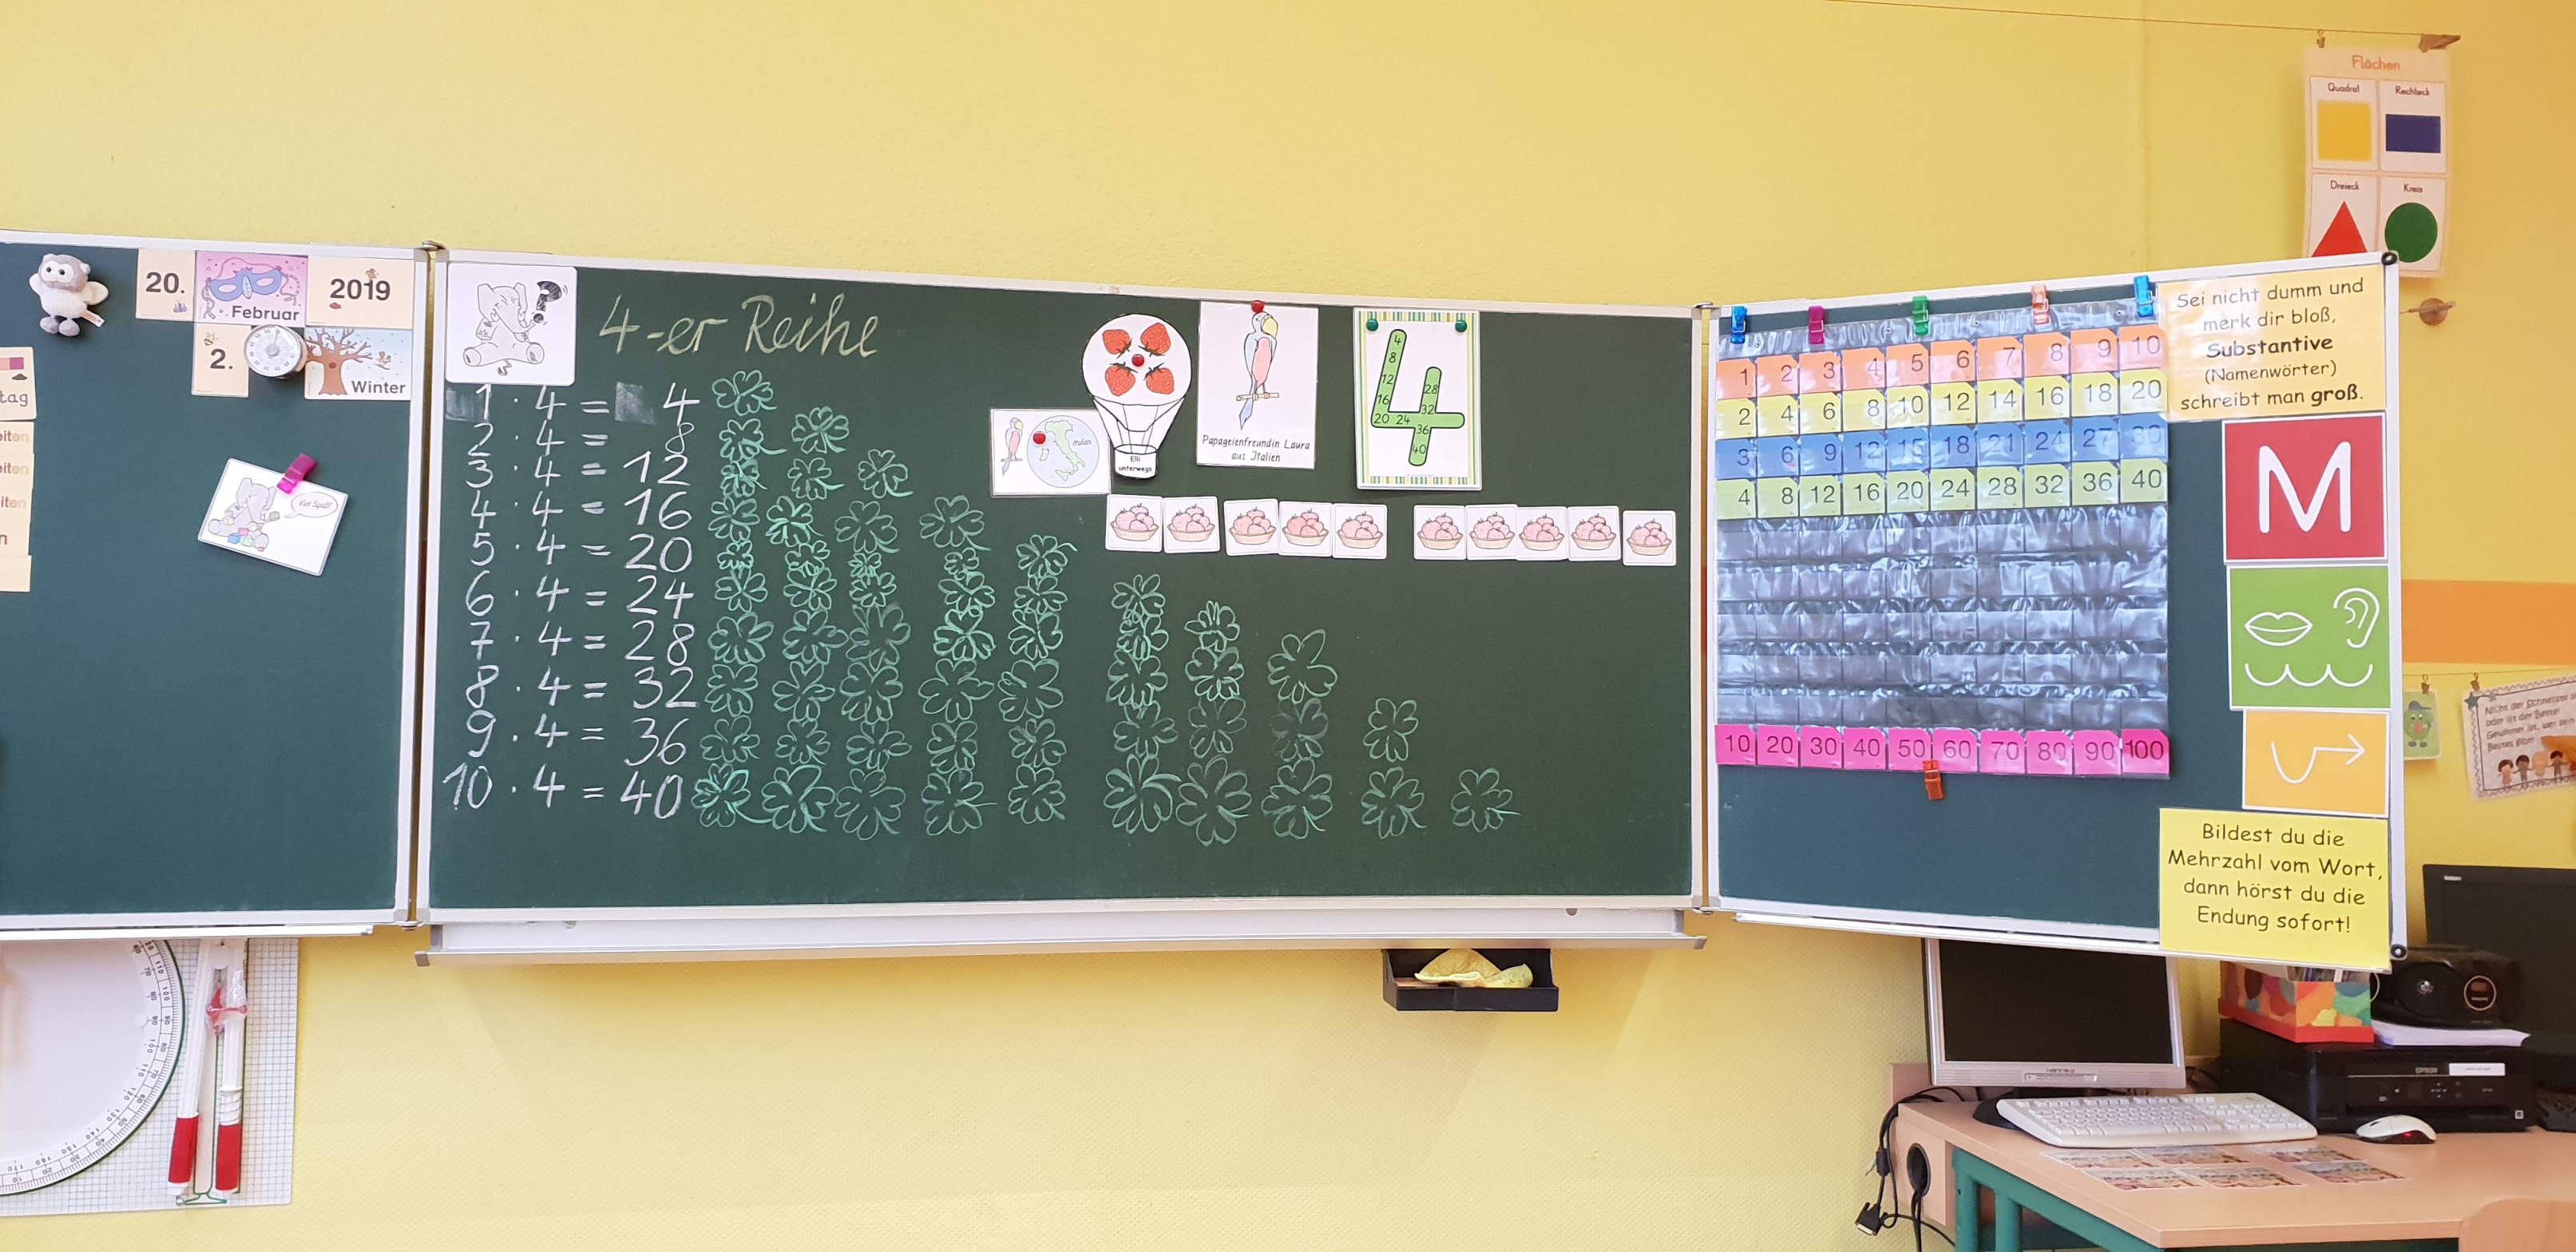 20.
Februar
2019
2.
Winter
tag
eiten
eiten
eiten
n
Viel Spaß!
4-er Reihe
1 · 4 = 4
2 · 4 = 8
3 · 4 = 12
4 · 4 = 16
5 · 4 = 20
6 · 4 = 24
7 · 4 = 28
8 · 4 = 32
9 · 4 = 36
10 · 4 = 40
Italien
Elli
unterwegs
Papageienfreundin Laura
aus Italien
4
8
12
16
20 24
28
32
36
40
1 2 3 4 5 6 7 8 9 10
2 4 6 8 10 12 14 16 18 20
3 6 9 12 15 18 21 24 27 30
4 8 12 16 20 24 28 32 36 40
10 20 30 40 50 60 70 80 90 100
Flächen
Quadrat
Rechteck
Dreieck
Kreis
Sei nicht dumm und
merk dir bloß,
Substantive
(Namenwörter)
schreibt man groß.
M
Bildest du die
Mehrzahl vom Wort,
dann hörst du die
Endung sofort!
Nicht der Schnellste
oder ist der Beste!
Gewinner ist, wer sein
Bestes gibt!
EPSON